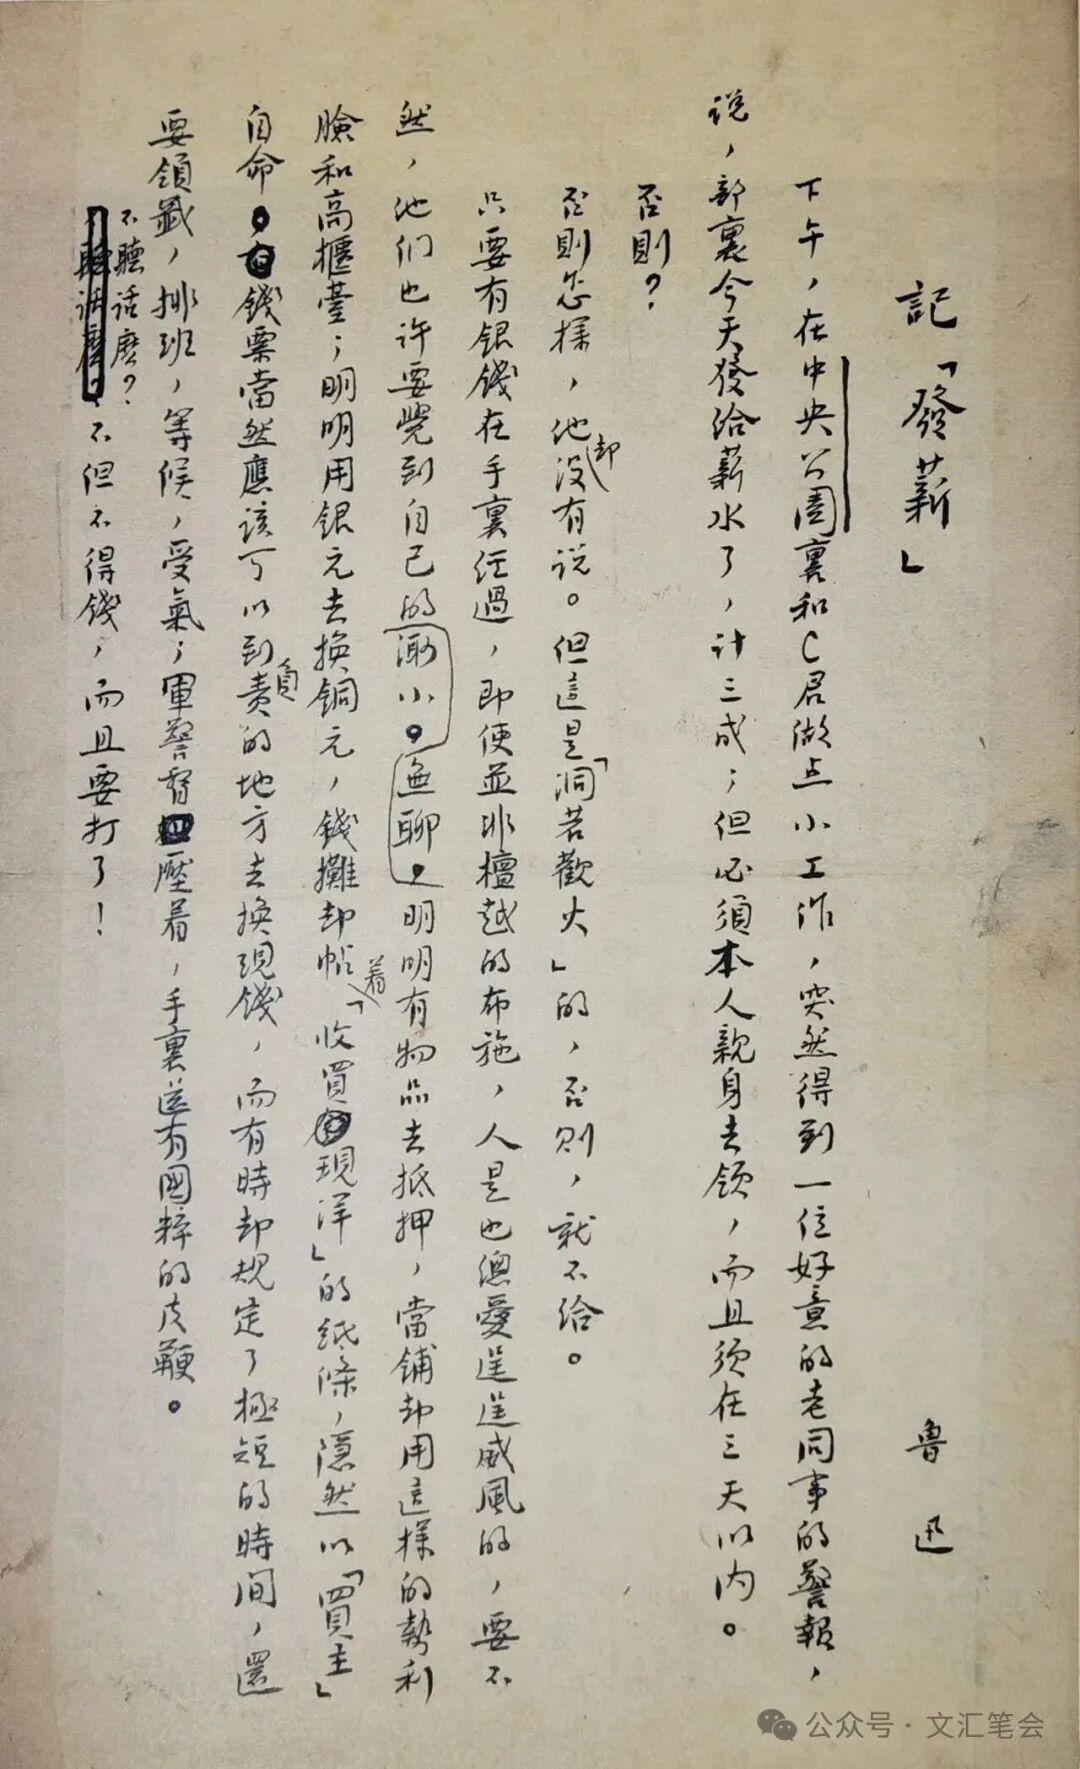 記「發薪」
魯迅
下午，在中央公園裏和C君做点小工作，突然得到一位好意的老同事的警報，
说，部裏今天發给薪水了，计三成；但必须本人親身去领，而且须在三天以内。
否則？
否則怎樣，他却没有说。但這是「洞若觀火」的，否则，就不给。
只要有银錢在手裏经過，即使並非檀越的布施，人是也總愛逞逞威風的，要不
然，他们也许要覺到自己的渺小。無聊。明明有物品去抵押，當铺却用這樣的勢利
臉和高櫃臺；明明用银元去换铜元，錢攤却帖着「收買現洋」的紙條，隱然以「買主」
自命。錢票當然應該可以到負责的地方去换现錢，而有時却规定了極短的時间，還
要领籤，排班，等候，受氣；軍警督壓着，手裏還有國粹的皮鞭。
不聽话麽？不但不得錢，而且要打了！
公众号·文汇笔会